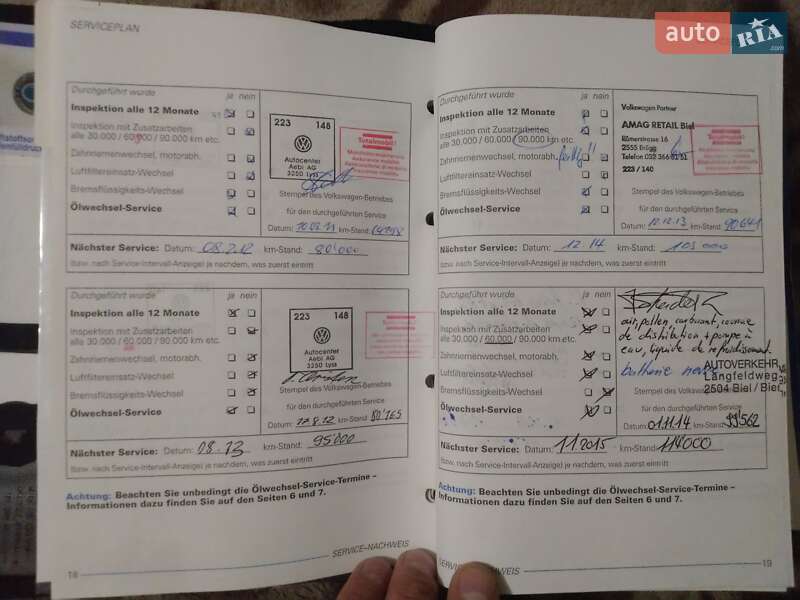 SERVICEPLAN
auto RIA
.com
Durchgeführt wurde ja nein
Inspektion alle 12 Monate
Inspektion mit Zusatzarbeiten
alle 30.000 / 60.000 / 90.000 km etc.
Zahnriemenwechsel, motorabh.
Luftfiltereinsatz-Wechsel
Bremsflüssigkeits-Wechsel
Ölwechsel-Service
223 148
Autocenter
Aebi AG
3250 Lyss
Totalmobil!
Stempel des Volkswagen-Betriebes
für den durchgeführten Service
Datum: km-Stand:
Nächster Service: Datum: 08.2.12 km-Stand: 80'000
(bzw. nach Service-Intervall-Anzeige) je nachdem, was zuerst eintritt
Durchgeführt wurde ja nein
Inspektion alle 12 Monate
Inspektion mit Zusatzarbeiten
alle 30.000 / 60.000 / 90.000 km etc.
Zahnriemenwechsel, motorabh.
Luftfiltereinsatz-Wechsel
Bremsflüssigkeits-Wechsel
Ölwechsel-Service
223 148
Autocenter
Aebi AG
3250 Lyss
Stempel des Volkswagen-Betriebes
für den durchgeführten Service
Datum: 17.8.12 km-Stand: 80'165
Nächster Service: Datum: 08.13 km-Stand: 95'000
(bzw. nach Service-Intervall-Anzeige) je nachdem, was zuerst eintritt
Achtung: Beachten Sie unbedingt die Ölwechsel-Service-Termine –
Informationen dazu finden Sie auf den Seiten 6 und 7.
18
SERVICE-NACHWEIS
Durchgeführt wurde ja nein
Inspektion alle 12 Monate
Inspektion mit Zusatzarbeiten
alle 30.000 / 60.000 / 90.000 km etc.
Zahnriemenwechsel, motorabh.
Luftfiltereinsatz-Wechsel
Bremsflüssigkeits-Wechsel
Ölwechsel-Service
Volkswagen Partner
AMAG RETAIL Biel
Römerstrasse 16
2555 Brügg
Telefon 032 366 51 51
223 / 140
Stempel des Volkswagen-Betriebes
für den durchgeführten Service
Datum: 12.12.13 km-Stand: 90641
Nächster Service: Datum: 12.14 km-Stand: 105000
(bzw. nach Service-Intervall-Anzeige) je nachdem, was zuerst eintritt
Durchgeführt wurde ja nein
Inspektion alle 12 Monate
Inspektion mit Zusatzarbeiten
alle 30.000 / 60.000 / 90.000 km etc.
Zahnriemenwechsel, motorabh.
Luftfiltereinsatz-Wechsel
Bremsflüssigkeits-Wechsel
Ölwechsel-Service
air, pollen, carburant, courroie
de distribution + pompe à
eau, liquide de refroidissement
batterie neuve
AUTOVERKEHR
Längfeldweg
2504 Biel / Bien
Stempel des Volkswagen-Betriebes
für den durchgeführten Service
Datum: 01.11.14 km-Stand: 99562
Nächster Service: Datum: 11.2015 km-Stand: 114000
(bzw. nach Service-Intervall-Anzeige) je nachdem, was zuerst eintritt
Achtung: Beachten Sie unbedingt die Ölwechsel-Service-Termine –
Informationen dazu finden Sie auf den Seiten 6 und 7.
19